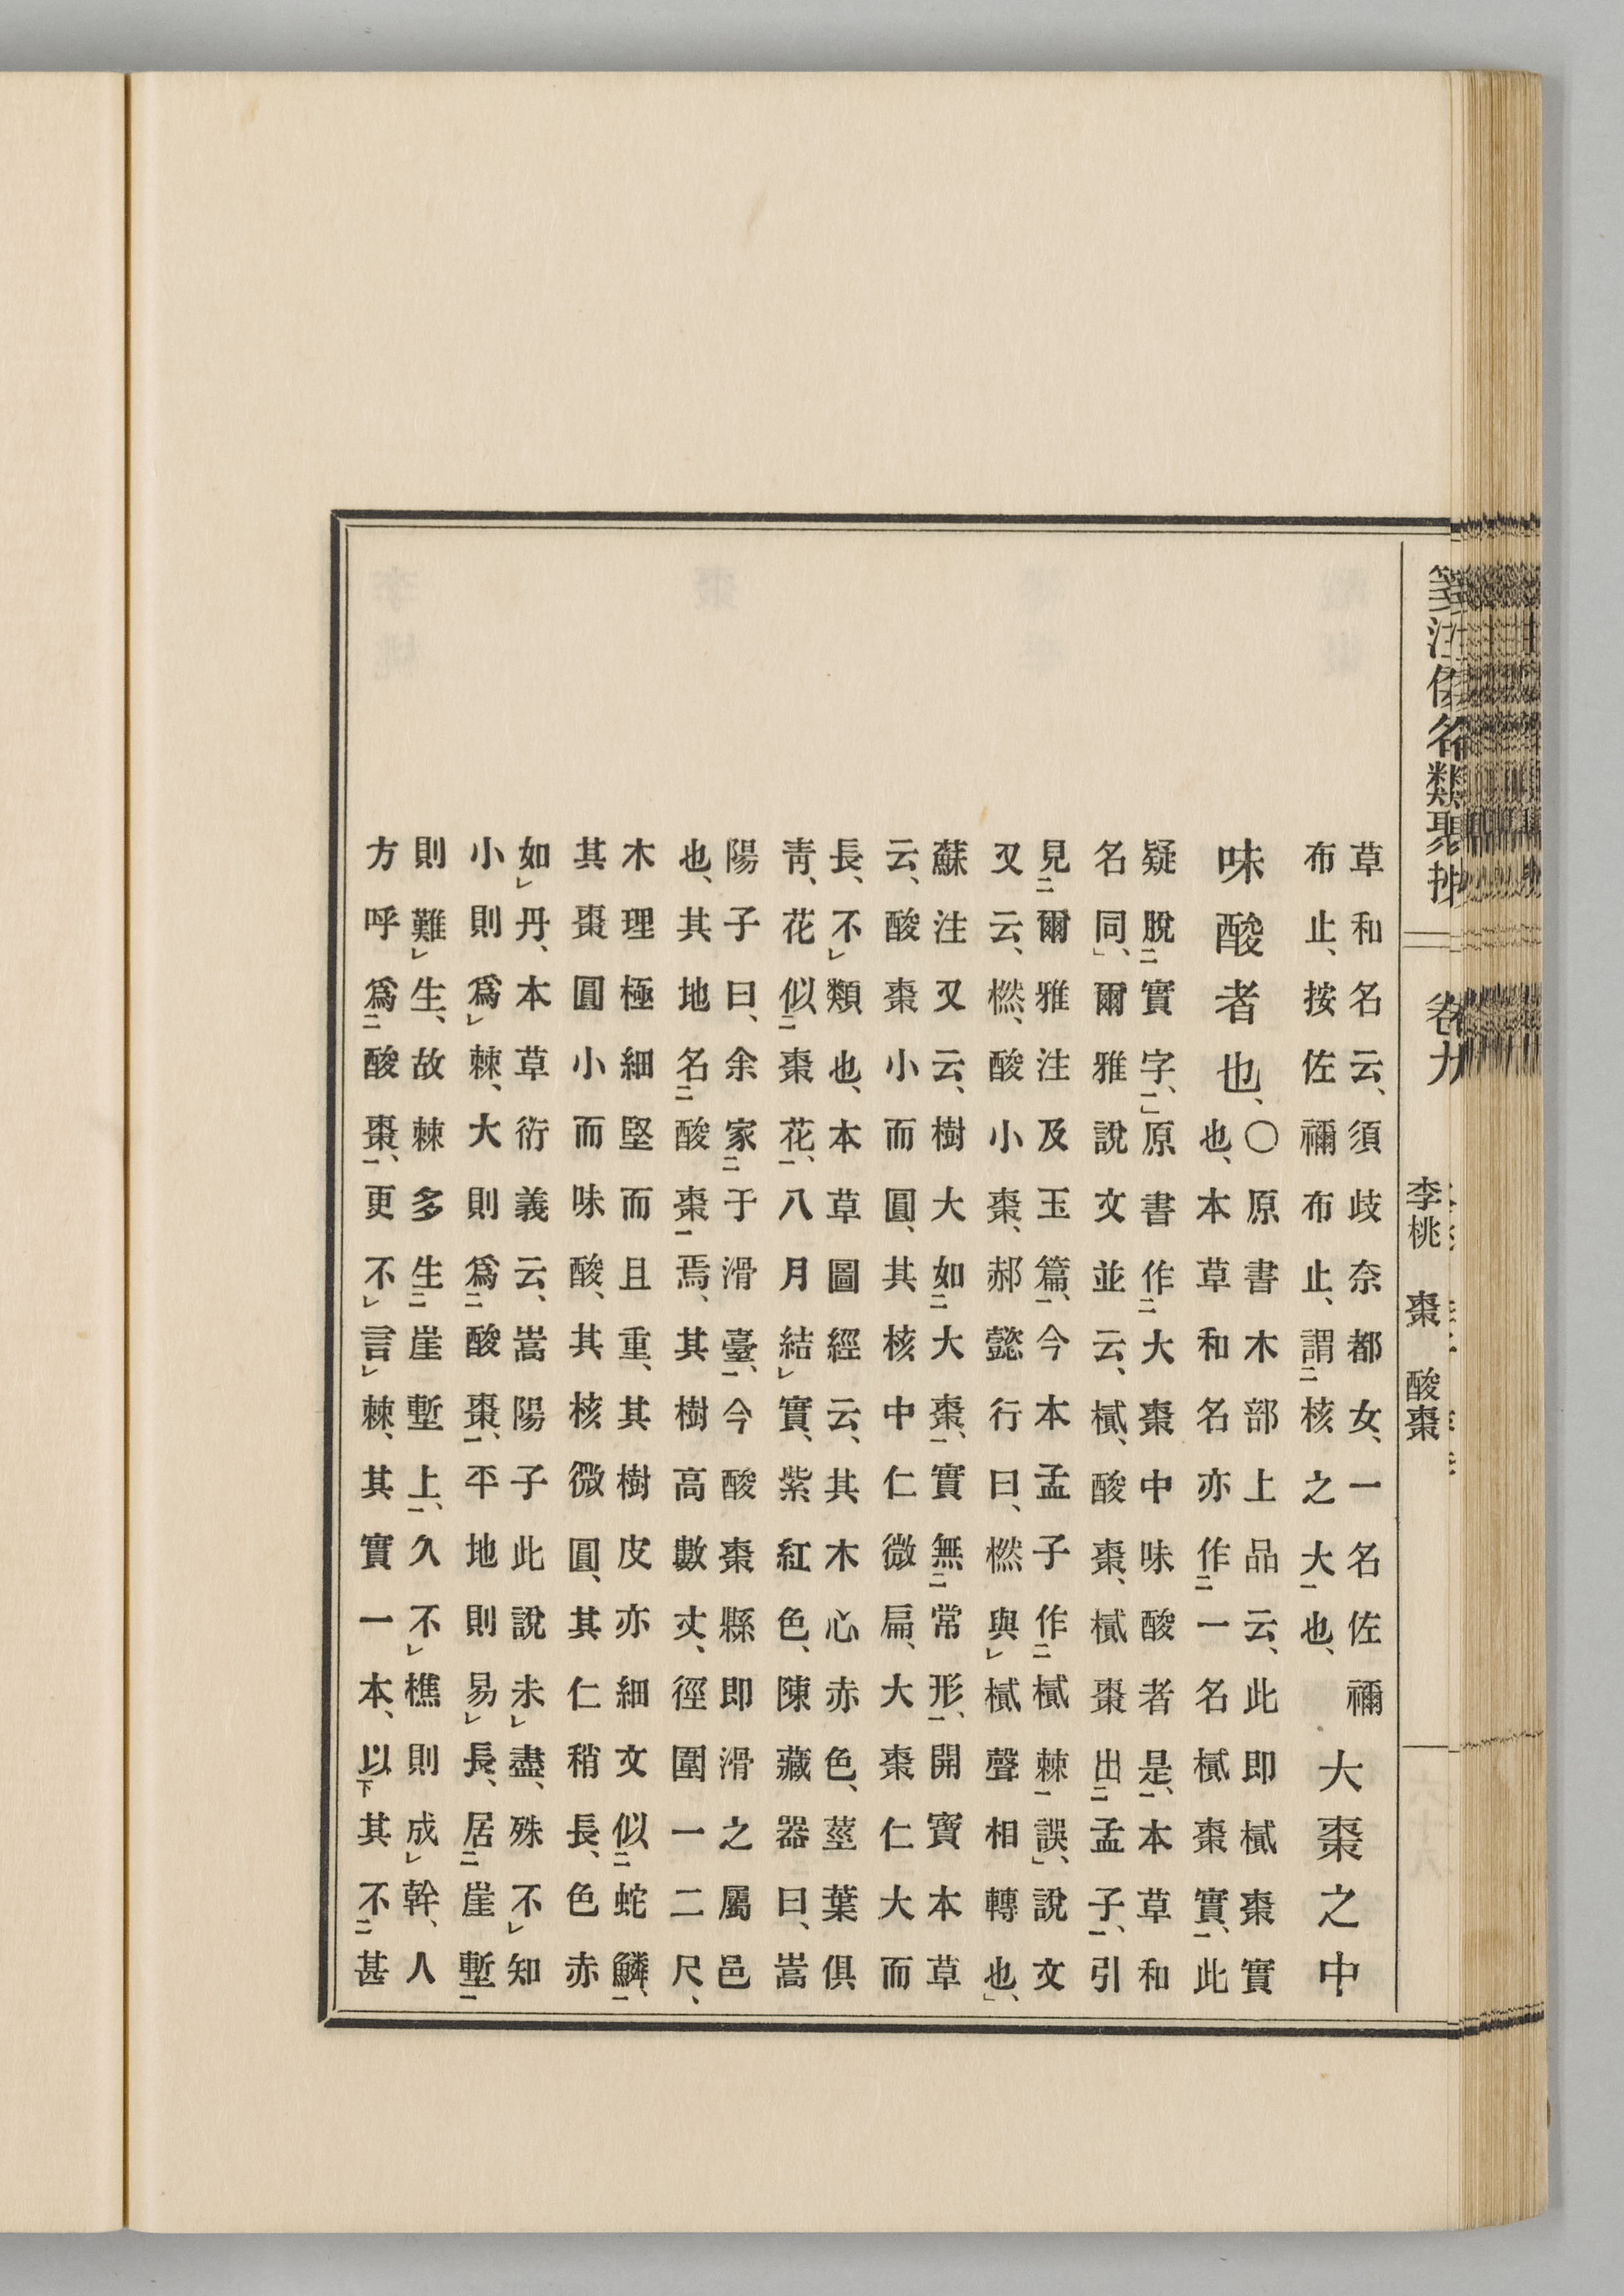 箋注倭名類聚抄 卷九 李桃 棗 酸棗
草和名云、須歧奈都女、一名佐禰
布止、按佐禰布止、謂㆓核之大㆒也、
大棗之中
味酸者也、
○原書木部上品云、此即樲棗實
也、本草和名亦作㆓一名樲棗實㆒、此
疑脫㆓實字㆒、」原書作㆓大棗中味酸者是㆒、本草和
名同、」爾雅說文並云、樲、酸棗、樲棗出㆓孟子㆒、引
見㆓爾雅注及玉篇㆒、今本孟子作㆓樲棘㆒誤、」說文
又云、橪、酸小棗、郝懿行曰、橪與㆑樲聲相轉也、」
蘇注又云、樹大如㆓大棗㆒、實無㆓常形㆒、開寶本草
云、酸棗小而圓、其核中仁微扁、大棗仁大而
長、不㆑類也、本草圖經云、其木心赤色、莖葉俱
靑、花似㆓棗花㆒、八月結㆑實、紫紅色、陳藏器曰、嵩
陽子曰、余家㆓于滑臺㆒、今酸棗縣即滑之屬邑
也、其地名㆓酸棗㆒焉、其樹高數丈、徑圍一二尺、
木理極細堅而且重、其樹皮亦細文似㆓蛇鱗㆒、
其棗圓小而味酸、其核微圓、其仁稍長、色赤
如㆑丹、本草衍義云、嵩陽子此說未㆑盡、殊不㆑知
小則爲㆑棘、大則爲㆓酸棗㆒、平地則易㆑長、居㆓崖塹㆒
則難㆑生、故棘多生㆓崖塹上㆒、久不㆑樵則成㆑幹、人
方呼爲㆓酸棗㆒、更不㆑言㆑棘、其實一本、以㆘其不㆓甚